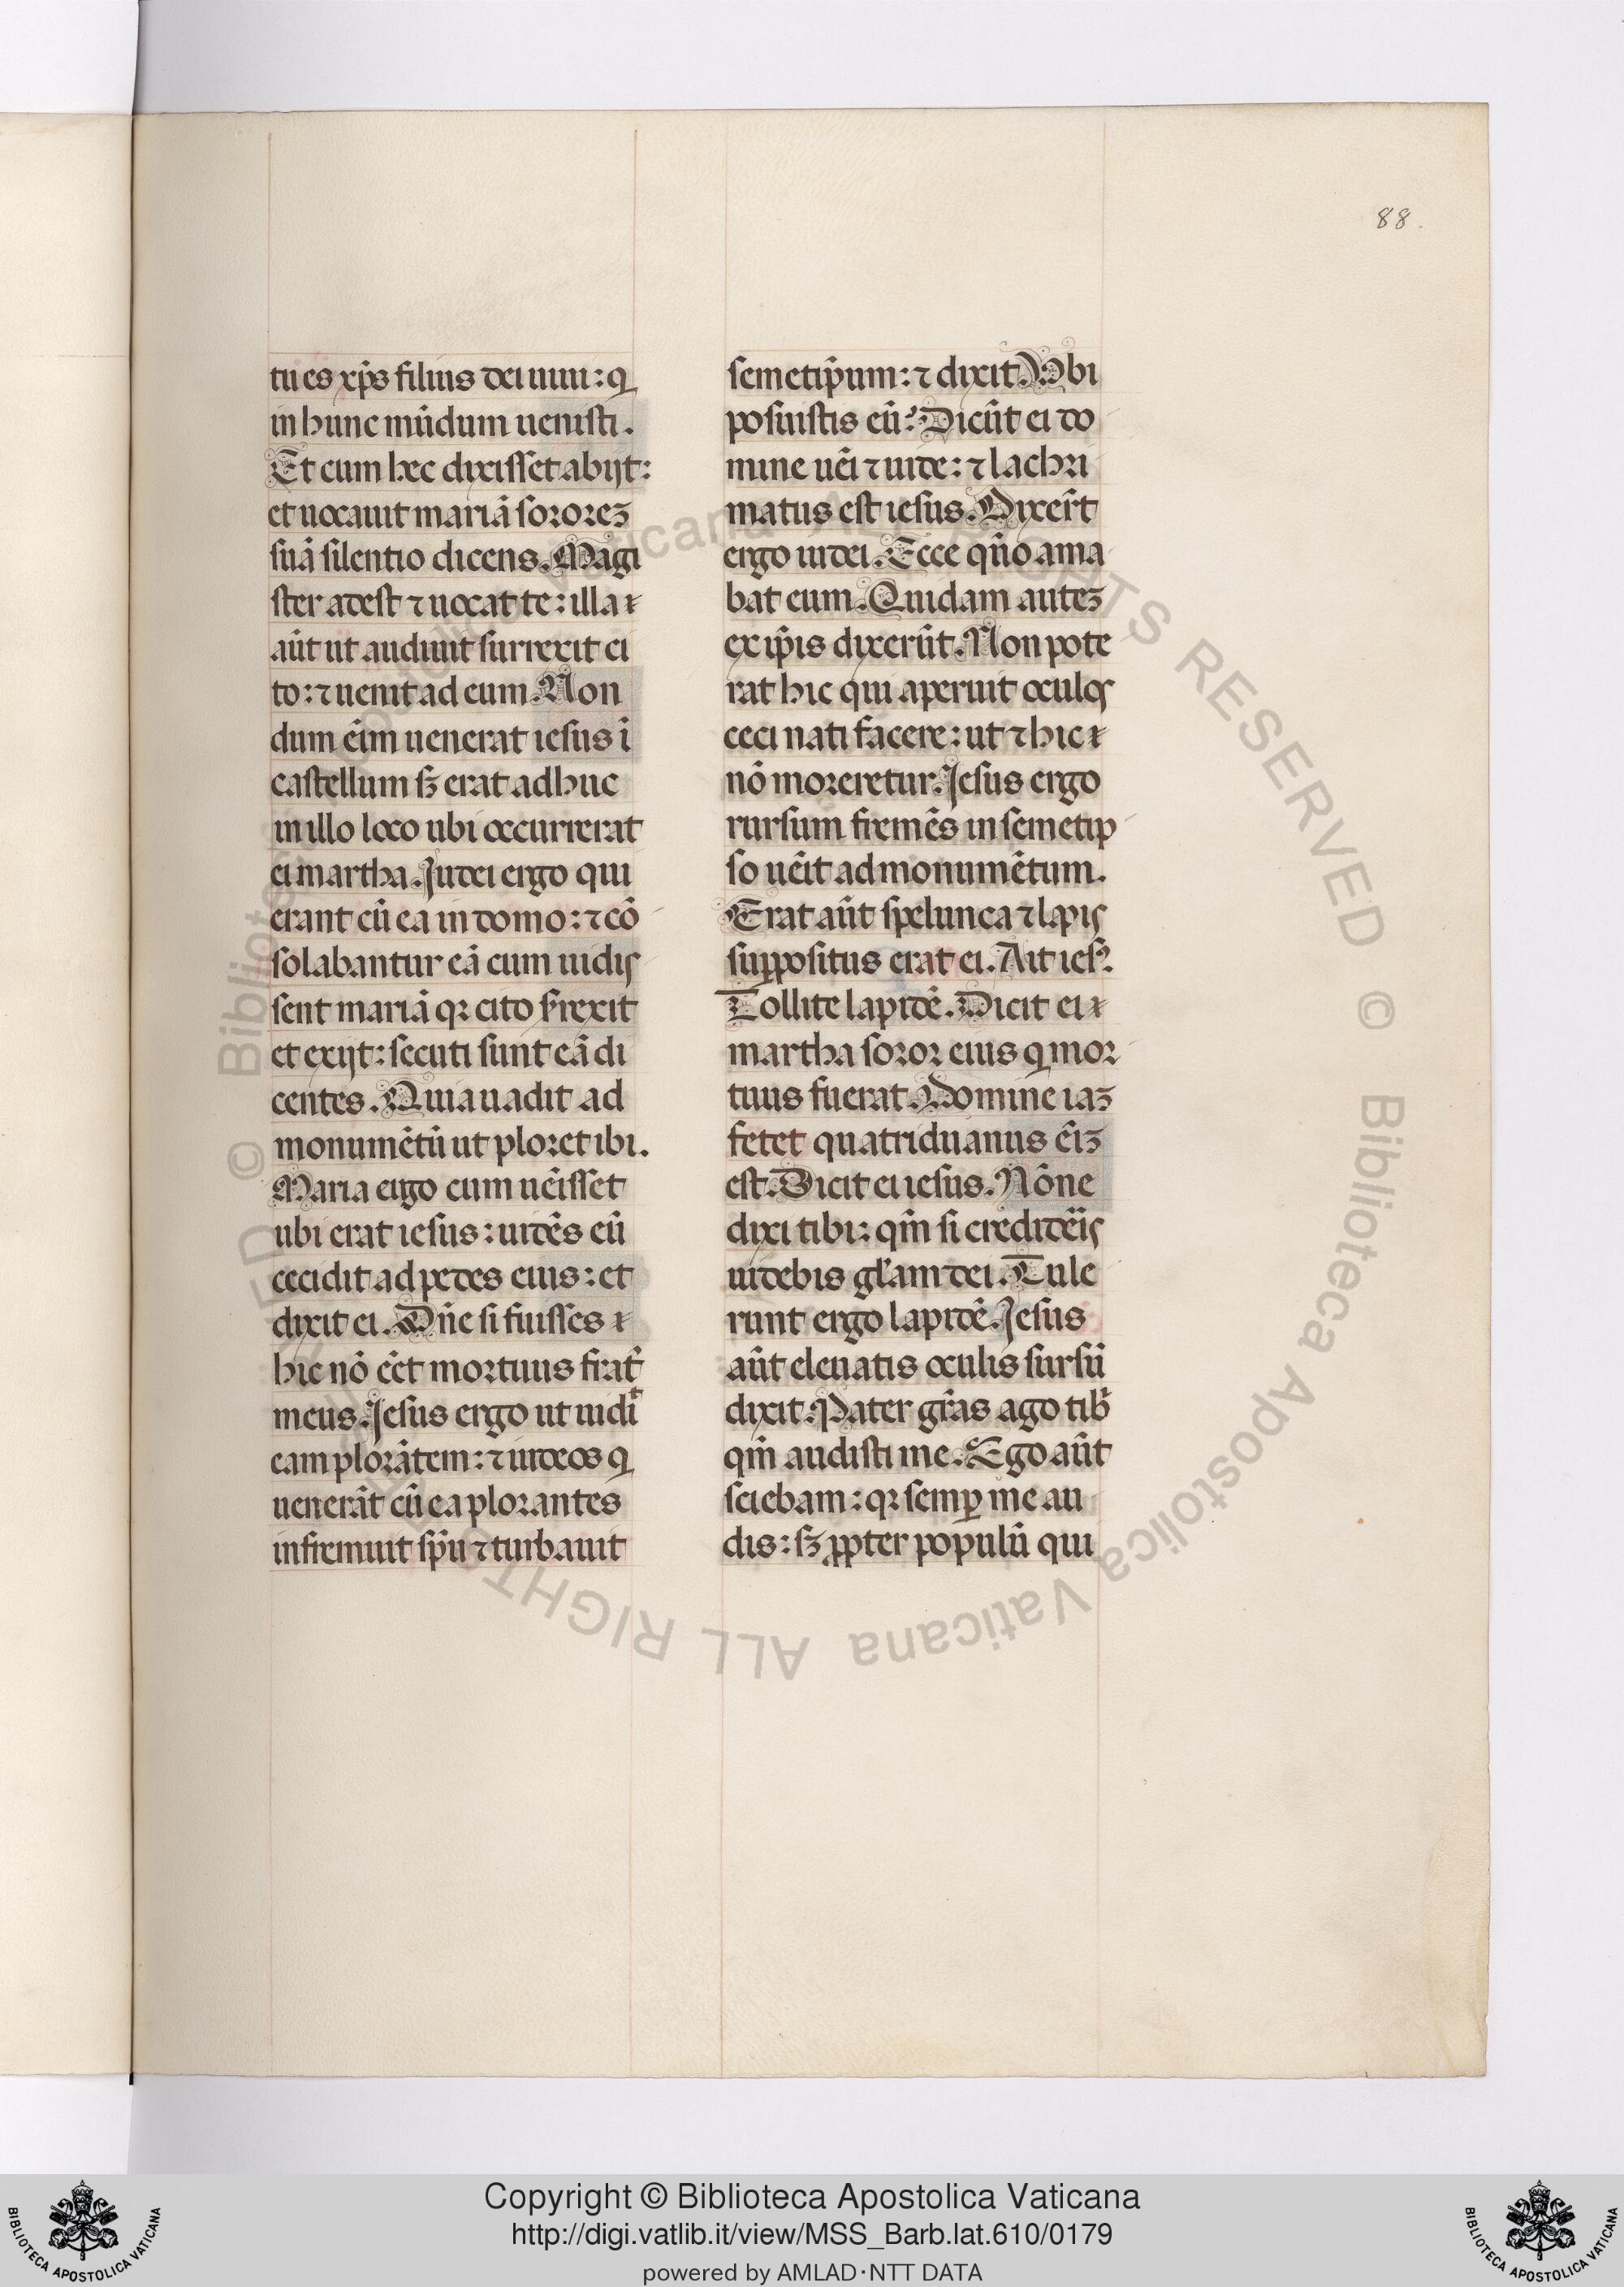 88.
tu es xp̄s filius dei uiui: q
in hunc mūdum uenisti.
Et cum hec dixisset abijt:
et uocauit mariā sororeʒ
suā silentio dicens. Magi
ster adest ⁊ uocat te: illa
aūt ut audiuit surrexit ci
to: ⁊ uenit ad eum. Non
dum ēim uenerat iesus ī
castellum sʒ erat adhuc
in illo loco ubi occurrerat
ei martha. Judei ergo qui
erant cū ea in domo: ⁊ cō
solabantur eā cum uidis
sent mariā qꝛ cito s̄rexit
et exijt: secuti sunt eā di
centes. Quia uadit ad
monumētū ut ploret ibi.
Maria ergo cum uēisset
ubi erat iesus: uidēs eū
cecidit ad pedes eius: et
dixit ei. Dn̄e si fuisses
hic nō ēet mortuus frat̄
meus. Jesus ergo ut uidit
eam plorātem: ⁊ iudeos q
uenerāt cū ea plorantes
infremuit sp̄u ⁊ turbauit
semetip̄um: ⁊ dixit. Vbi
posuistis eū? Dicūt ei do
mine uēi ⁊ uide: ⁊ lachri
matus est iesus. Dixer̄t
ergo iudei. Ecce qūo ama
bat eum. Quidam auteʒ
ex ip̄is dixerūt. Non pote
rat hic qui aperuit oculos
ceci nati facere: ut ⁊ hic
nō moreretur. Jesus ergo
rursum fremēs in semetip
so uēit ad monumētum.
Erat aūt spelunca ⁊ lapis
suppositus erat ei. Ait iesꝰ.
Tollite lapidē. Dicit ei
martha soror eius q mor
tuus fuerat. Domine iaʒ
fetet quatriduanus ēiʒ
est. Dicit ei iesus. Nōne
dixi tibi: qm̄ si credidēis
uidebis gl̄am dei. Tule
runt ergo lapidē. Jesus
aūt eleuatis oculis sursū
dixit. Pater gr̄as ago tibi
qm̄ audisti me. Ego aūt
sciebam: qꝛ semꝑ me au
dis: sʒ ꝓpter populū qui
© Biblioteca Apostolica Vaticana ALL RIGHTS RESERVED © Biblioteca Apostolica Vaticana ALL RIGHTS RESERVED
Copyright © Biblioteca Apostolica Vaticana
http://digi.vatlib.it/view/MSS_Barb.lat.610/0179
powered by AMLAD·NTT DATA
BIBLIOTECA APOSTOLICA VATICANA
BIBLIOTECA APOSTOLICA VATICANA